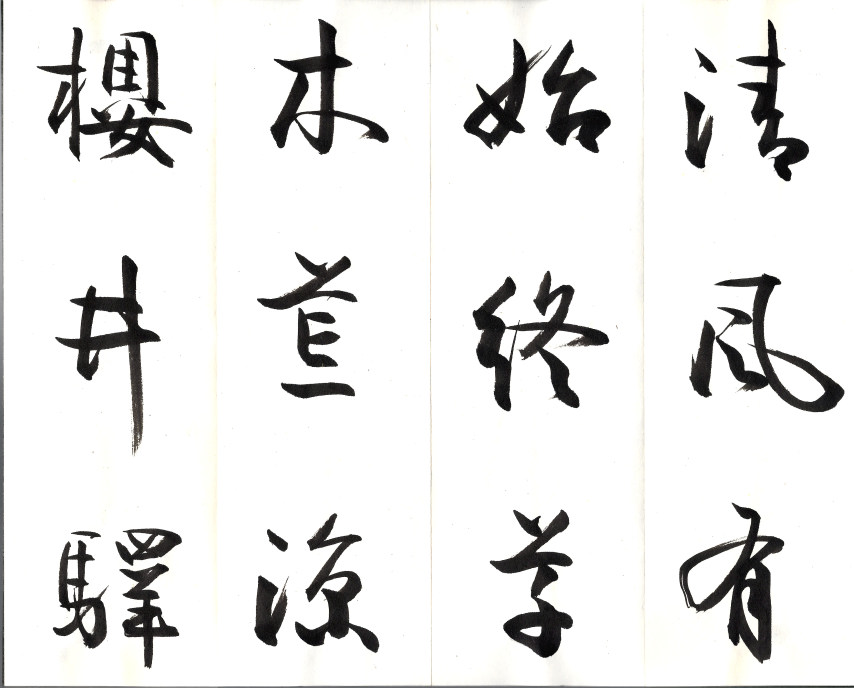 清風有
始終学
木涼
櫻井驛